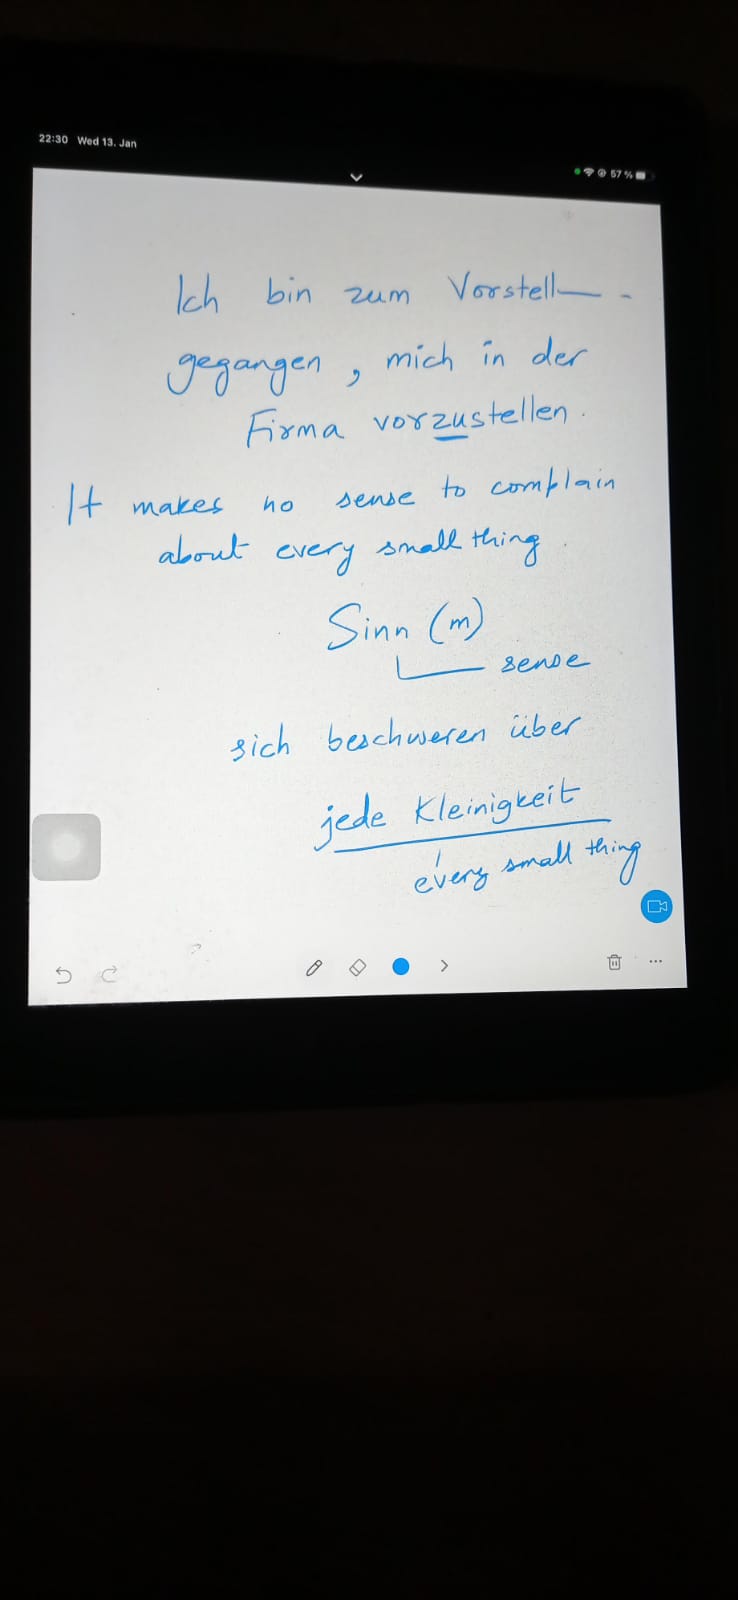 22:30 Wed 13. Jan
57 %
Ich bin zum Vorstell
gegangen, mich in der
Firma vorzustellen.
It makes no sense to complain
about every small thing.
Sinn (m)
sense
sich beschweren über
jede Kleinigkeit
every small thing